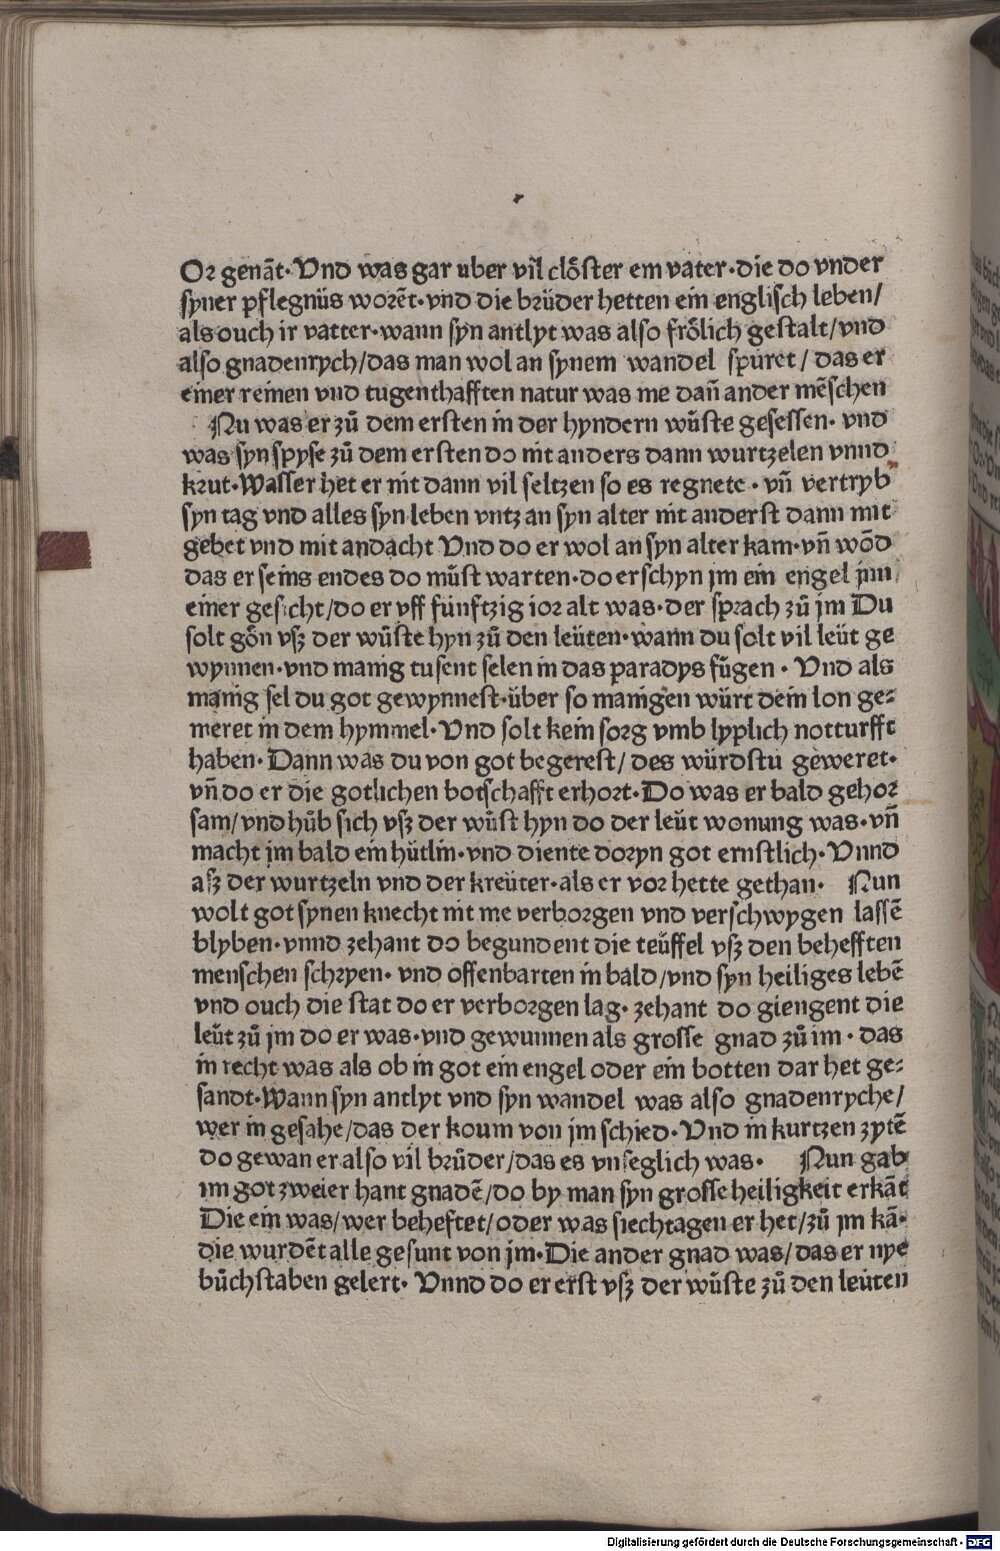 Or genāt·Vnd was gar uber vil clöſter em vater·die do vnder
ſyner pflegnüs worēt·vnd die brüder hetten ein engliſch leben/
als ouch ir vatter·wann ſyn antlyt was alſo frölich geſtalt/vnd
alſo gnadenrych/das man wol an ſynem wandel ſpuret/das er
einer reinen vnd tugenthafften natur was me dañ ander mēſchen
Nu was er zů dem erſten in der hyndern wůſte geſeſſen· vnd
was ſyn ſpyſe zů dem erſten do nit anders dann wurtzelen vnnd
krut·Waſſer het er nit dann vil ſeltzen ſo es regnete·vñ vertryb
ſyn tag vnd alles ſyn leben vntz an ſyn alter nit anderſt dann mit
gebet vnd mit andacht Vnd do er wol an ſyn alter kam·vñ wōd
das er ſeins endes do můſt warten·do erſchyn jm ein engel jnn
einer geſicht/do er vff fünftzig ior alt was·der ſprach zů jm Du
ſolt gön vſz der wůſte hyn zů den leüten·wann du ſolt vil leüt ge
wynnen·vnd manig tuſent ſelen in das paradys fůgen· Vnd als
manig ſel du got gewynneſt·über ſo manigen würt dein lon ge⸗
meret in dem hymmel·Vnd ſolt kein ſorg vmb lyplich notturfft
haben·Dann was du von got begereſt/des würdſtu geweret·
vñ do er die gotlichen botſchafft erhort·Do was er bald gehor
ſam/vnd hůb ſich vſz der wůſt hyn do der leüt wonung was·vñ
macht jm bald ein hütlin·vnd diente doryn got ernſtlich·Vnnd
aſz der wurtzeln vnd der kreüter·als er vor hette gethan· Nun
wolt got ſynen knecht nit me verborgen vnd verſchwygen laſſē
blyben·vnnd zehant do begundent die teüffel vſz den behefften
menſchen ſchryen·vnd offenbarten in bald/vnd ſyn heiliges lebē
vnd ouch die ſtat do er verborgen lag·zehant do giengent die
leüt zů jm do er was·vnd gewunnen als groſſe gnad zů im·das
in recht was als ob in got ein engel oder ein botten dar het ge⸗
ſandt·Wann ſyn antlyt vnd ſyn wandel was alſo gnadenryche/
wer in geſahe/das der koum von jm ſchied·Vnd in kurtzen zytē
do gewan er alſo vil brüder/das es vnſeglich was· Nun gab
im got zweier hant gnadē/do by man ſyn groſſe heiligkeit erkāt
Die ein was/wer beheftet/oder was ſiechtagen er het/zů jm kā·
die wurdēt alle geſunt von jm·Die ander gnad was/das er nye
bůchſtaben gelert· Vnnd do er erſt vſz der wůſte zů den leüten
Digitalisierung gefördert durch die Deutsche Forschungsgemeinschaft - DFG